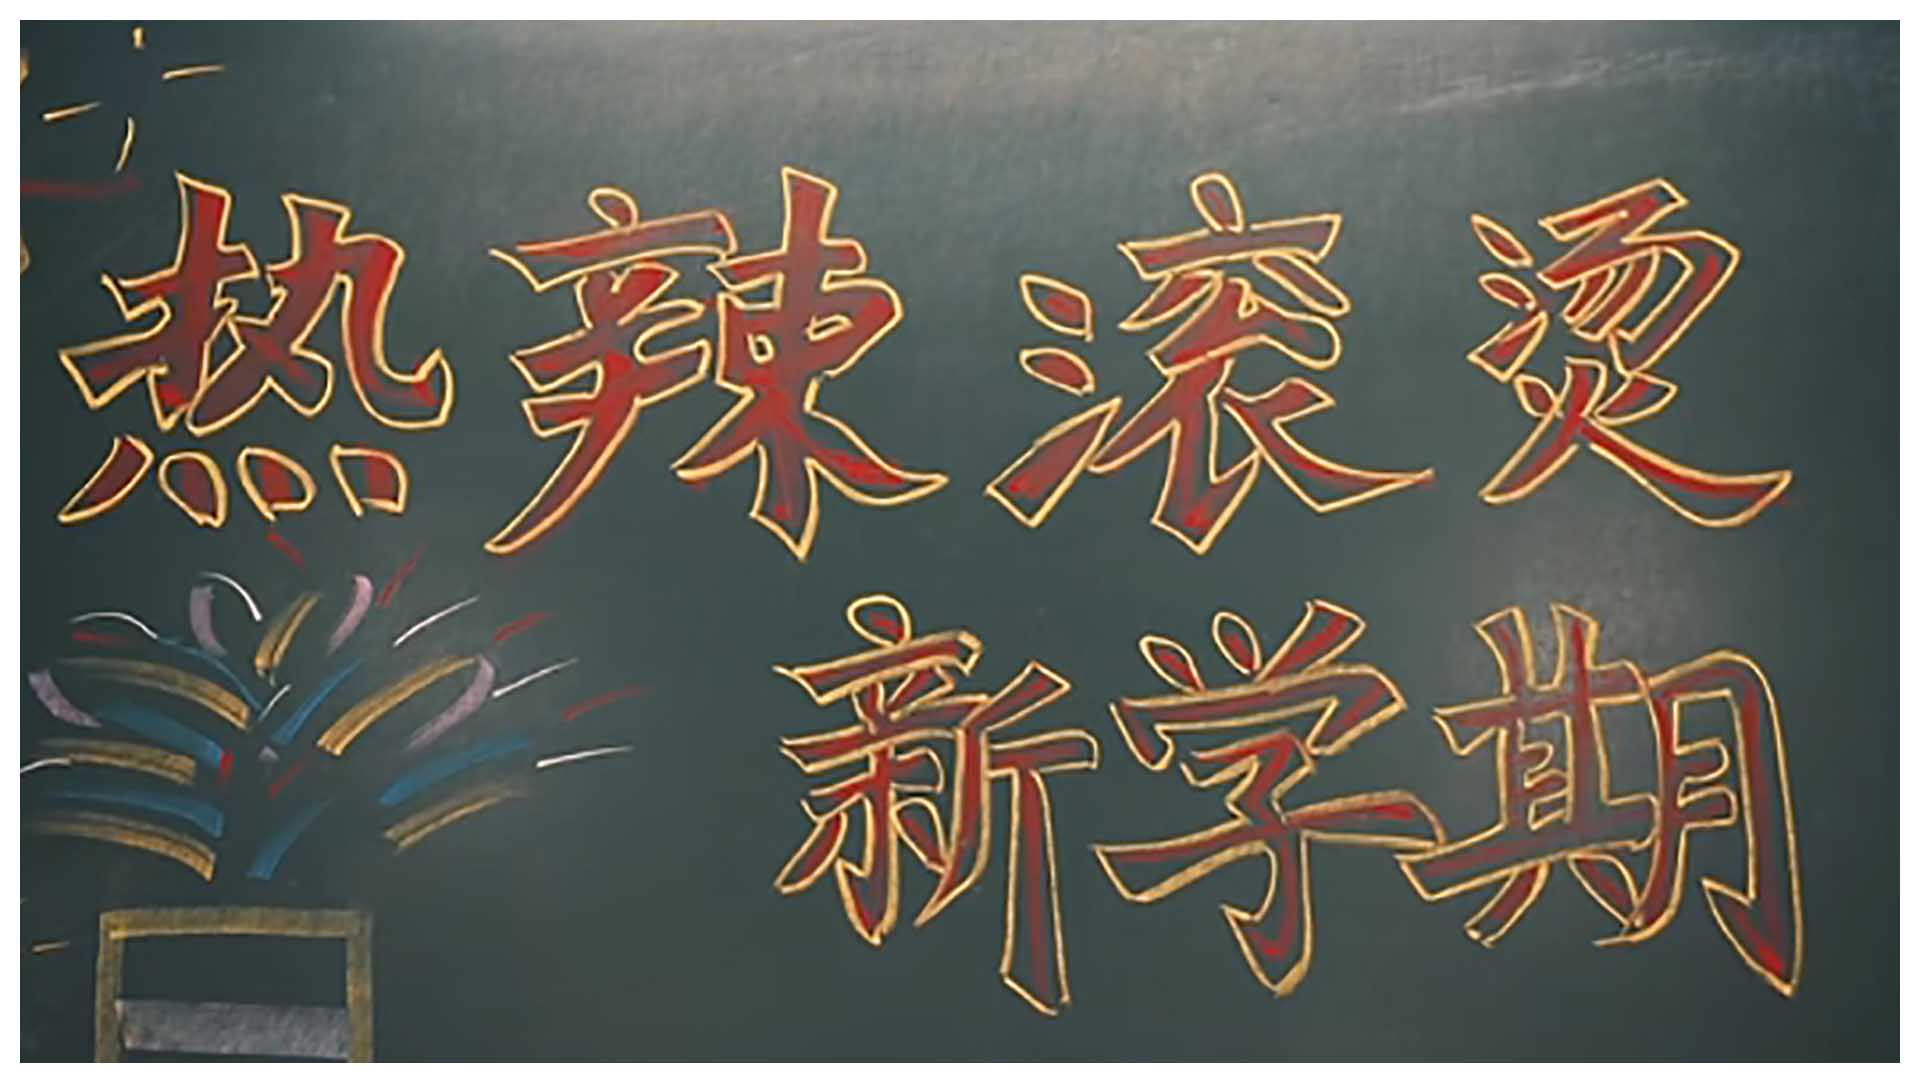 热辣滚烫
新学期